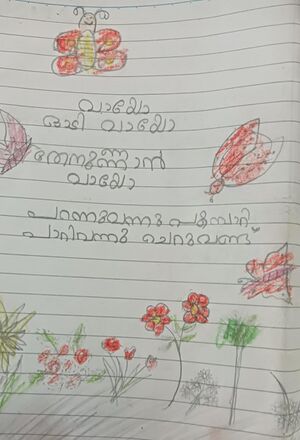 വായോ
ഓടി വായോ
തേനുണ്ണാൻ
വായോ
പറന്നുവന്നു പൂമ്പാറ്റ
പാറിവന്നു ചെറുവണ്ട്